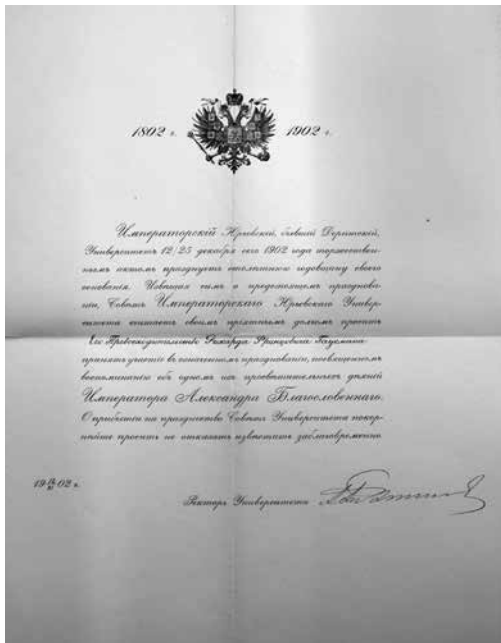 1802 г. 1902 г.
Императорскій Юрьевскій, бывшій Дерптскій,
Университетъ 12/25 декабря сего 1902 года торжествен-
нымъ актомъ празднуетъ столѣтнюю годовщину своего
основанія. Извѣщая симъ о предстоящемъ празднова-
ніи, Совѣтъ Императорскаго Юрьевскаго Универ-
ситета считаетъ своимъ пріятнымъ долгомъ просить
Его Превосходительство Рихарда Францовича
принять участіе въ означенномъ празднованіи, посвященномъ
воспоминанію объ одномъ изъ просвѣтительныхъ дѣяній
Императора Александра Благословеннаго.
О прибытіи на празднество Совѣтъ Университета покор-
нѣйше проситъ не отказать извѣстить заблаговременно
19 02 г.
Ректоръ Университета